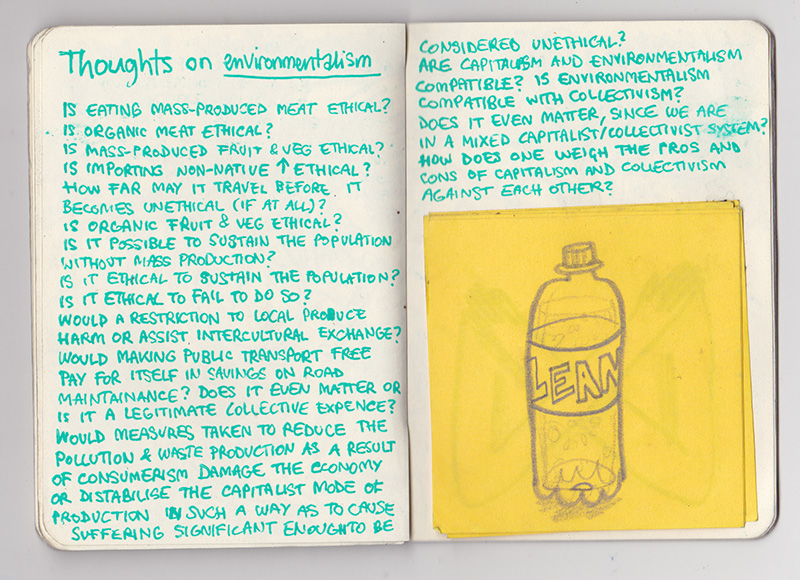 Thoughts on environmentalism
IS EATING MASS-PRODUCED MEAT ETHICAL?
IS ORGANIC MEAT ETHICAL?
IS MASS-PRODUCED FRUIT & VEG ETHICAL?
IS IMPORTING NON-NATIVE ↑ ETHICAL?
HOW FAR MAY IT TRAVEL BEFORE IT
BECOMES UNETHICAL (IF AT ALL)?
IS ORGANIC FRUIT & VEG ETHICAL?
IS IT POSSIBLE TO SUSTAIN THE POPULATION
WITHOUT MASS PRODUCTION?
IS IT ETHICAL TO SUSTAIN THE POPULATION?
IS IT ETHICAL TO FAIL TO DO SO?
WOULD A RESTRICTION TO LOCAL PRODUCE
HARM OR ASSIST INTERCULTURAL EXCHANGE?
WOULD MAKING PUBLIC TRANSPORT FREE
PAY FOR ITSELF IN SAVINGS ON ROAD
MAINTAINANCE? DOES IT EVEN MATTER OR
IS IT A LEGITIMATE COLLECTIVE EXPENCE?
WOULD MEASURES TAKEN TO REDUCE THE
POLLUTION & WASTE PRODUCTION AS A RESULT
OF CONSUMERISM DAMAGE THE ECONOMY
OR DISTABILISE THE CAPITALIST MODE OF
PRODUCTION IN SUCH A WAY AS TO CAUSE
SUFFERING SIGNIFICANT ENOUGH TO BE
CONSIDERED UNETHICAL?
ARE CAPITALISM AND ENVIRONMENTALISM
COMPATIBLE? IS ENVIRONMENTALISM
COMPATIBLE WITH COLLECTIVISM?
DOES IT EVEN MATTER, SINCE WE ARE
IN A MIXED CAPITALIST/COLLECTIVIST SYSTEM?
HOW DOES ONE WEIGH THE PROS AND
CONS OF CAPITALISM AND COLLECTIVISM
AGAINST EACH OTHER?
LEAN